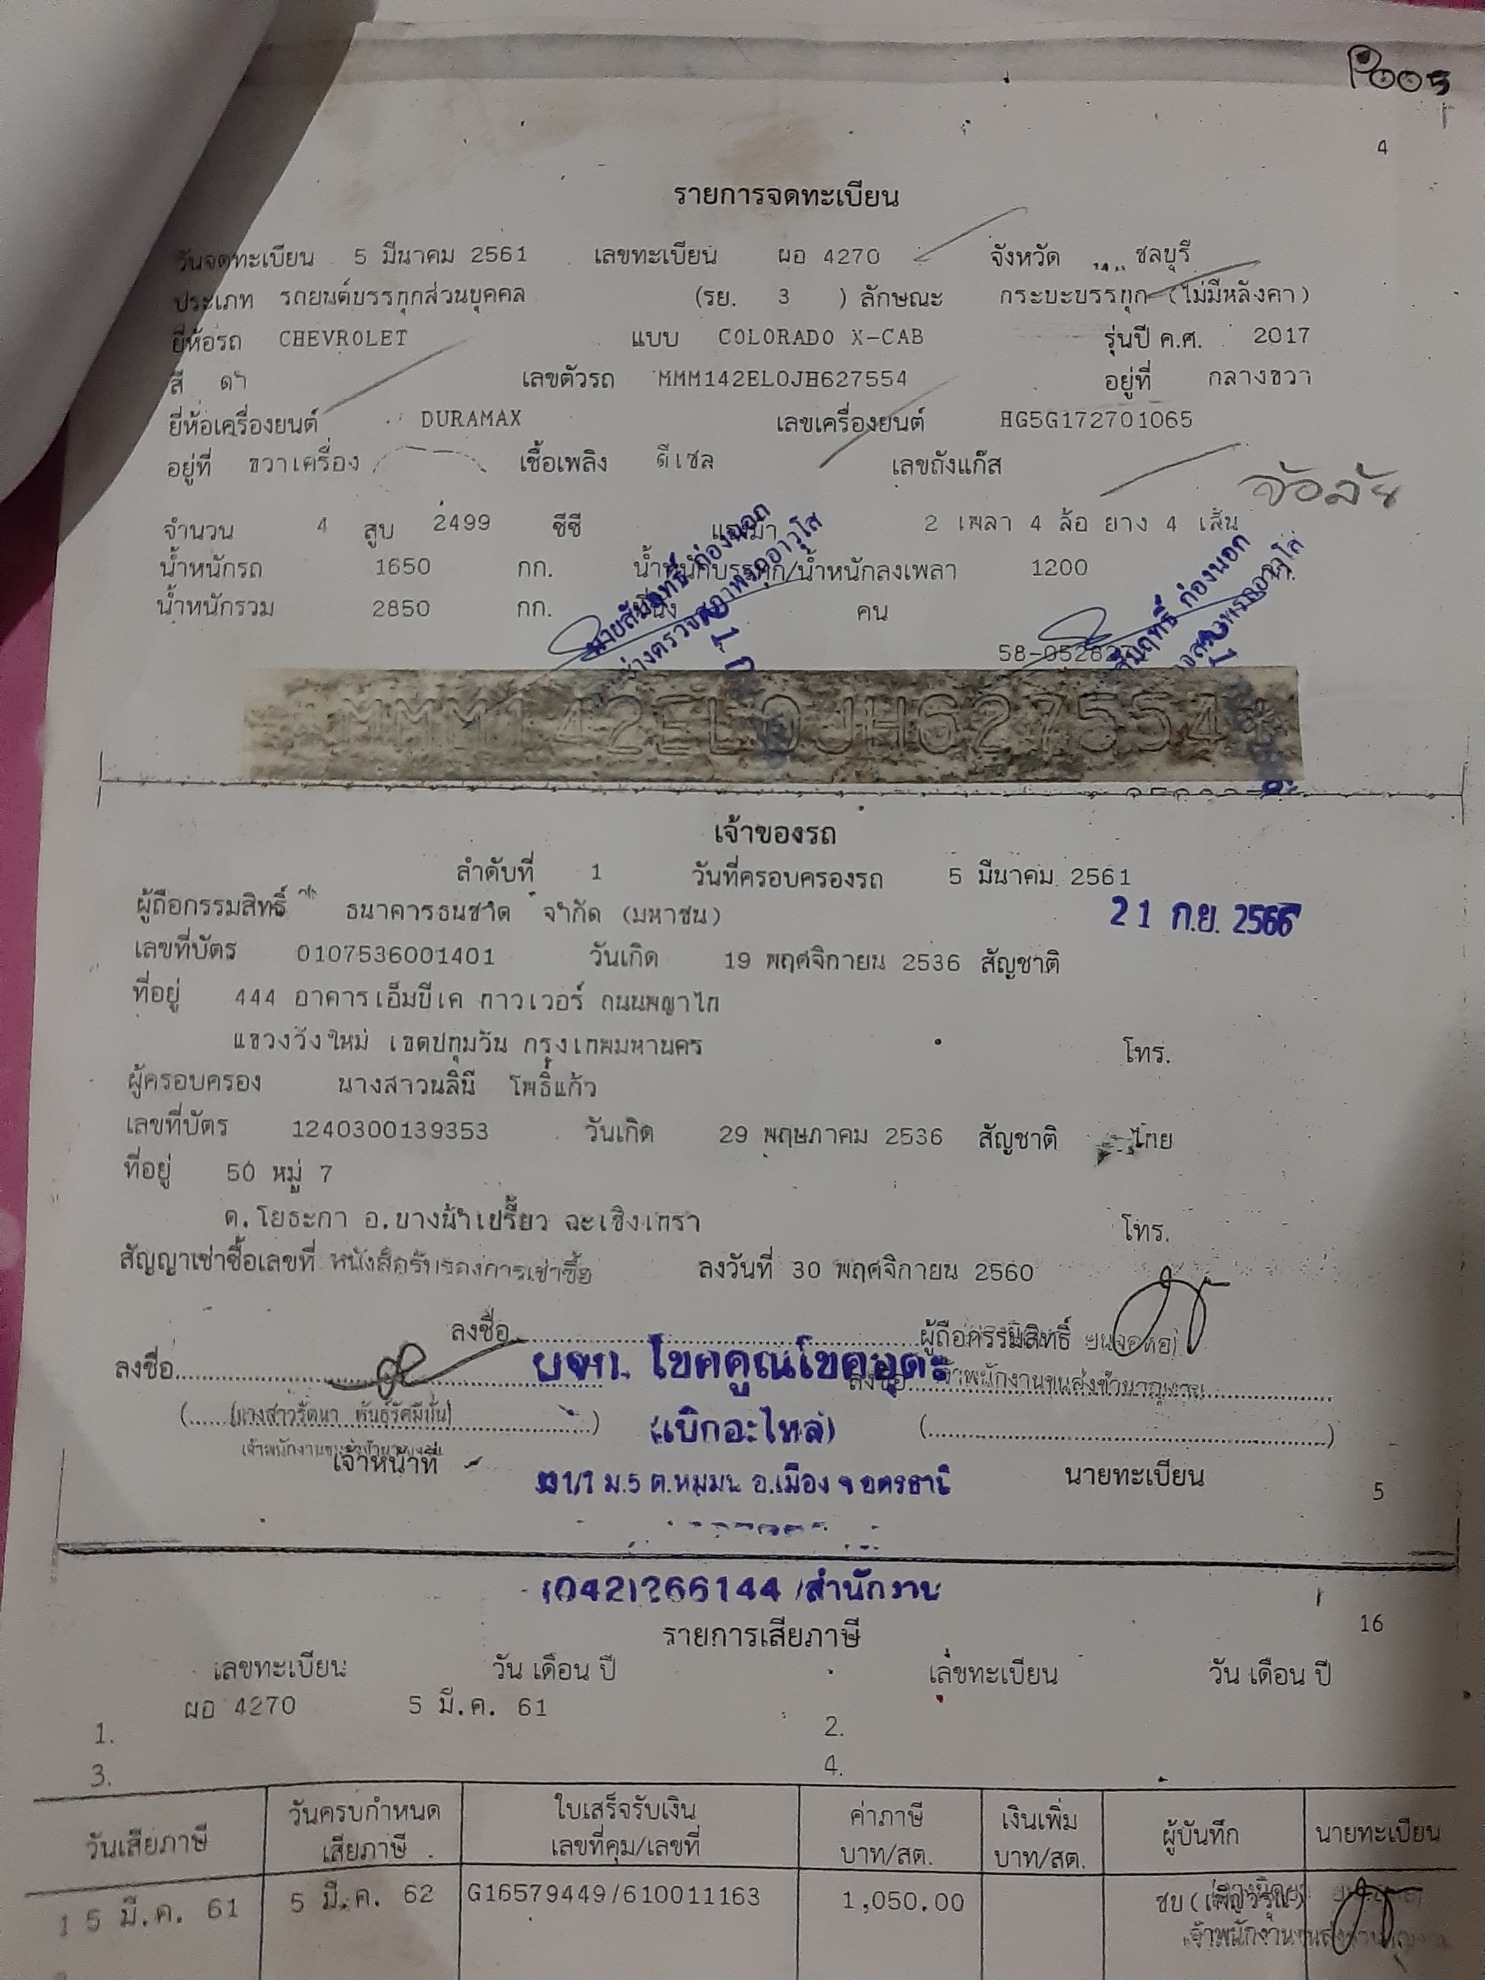 P005
4
รายการจดทะเบียน
วันจดทะเบียน 5 มีนาคม 2561 เลขทะเบียน ผอ 4270 จังหวัด ชลบุรี
ประเภท รถยนต์บรรทุกส่วนบุคคล (รย. 3 ) ลักษณะ กระบะบรรทุก (ไม่มีหลังคา)
ยี่ห้อรถ CHEVROLET แบบ COLORADO X-CAB รุ่นปี ค.ศ. 2017
สี ดำ เลขตัวรถ MMM142EL0JH627554 อยู่ที่ กลางขวา
ยี่ห้อเครื่องยนต์ DURAMAX เลขเครื่องยนต์ HG5G172701065
อยู่ที่ ขวาเครื่อง เชื้อเพลิง ดีเซล เลขถังแก๊ส
จำนวน 4 สูบ 2499 ซีซี แรงม้า 2 เพลา 4 ล้อ ยาง 4 เส้น
น้ำหนักรถ 1650 กก. น้ำหนักบรรทุก/น้ำหนักลงเพลา 1200
น้ำหนักรวม 2850 กก. ที่นั่ง คน
MMM142EL0JH627554*
เจ้าของรถ
ลำดับที่ 1 วันที่ครอบครองรถ 5 มีนาคม 2561
ผู้ถือกรรมสิทธิ์ ธนาคารธนชาต จำกัด (มหาชน)
21 ก.ย. 2566
เลขที่บัตร 0107536001401 วันเกิด 19 พฤศจิกายน 2536 สัญชาติ
ที่อยู่ 444 อาคารเอ็มบีเค ทาวเวอร์ ถนนพญาไท
แขวงวังใหม่ เขตปทุมวัน กรุงเทพมหานคร โทร.
ผู้ครอบครอง นางสาวนลินี โพธิ์แก้ว
เลขที่บัตร 1240300139353 วันเกิด 29 พฤษภาคม 2536 สัญชาติ ไทย
ที่อยู่ 50 หมู่ 7
ต.โยธะกา อ.บางน้ำเปรี้ยว ฉะเชิงเทรา โทร.
สัญญาเช่าซื้อเลขที่ หนังสือรับรองการเช่าซื้อ ลงวันที่ 30 พฤศจิกายน 2560
ลงชื่อ ผู้ถือกรรมสิทธิ์
ลงชื่อ ลงชื่อ
หจก. โชคคูณโชคอุดร
(เบิกอะไหล่)
เจ้าหน้าที่ นายทะเบียน
ม.5 ต.หมูม่น อ.เมือง จ.อุดรธานี
5
(042)266144/สำนักงาน
16
รายการเสียภาษี
เลขทะเบียน วัน เดือน ปี เลขทะเบียน วัน เดือน ปี
1. ผอ 4270 5 มี.ค. 61 2.
3. 4.
วันเสียภาษี วันครบกำหนดเสียภาษี ใบเสร็จรับเงิน เลขที่คุม/เลขที่ ค่าภาษี บาท/สต. เงินเพิ่ม บาท/สต. ผู้บันทึก นายทะเบียน
1 5 มี.ค. 61 5 มี.ค. 62 G16579449/610011163 1,050.00 ชบ